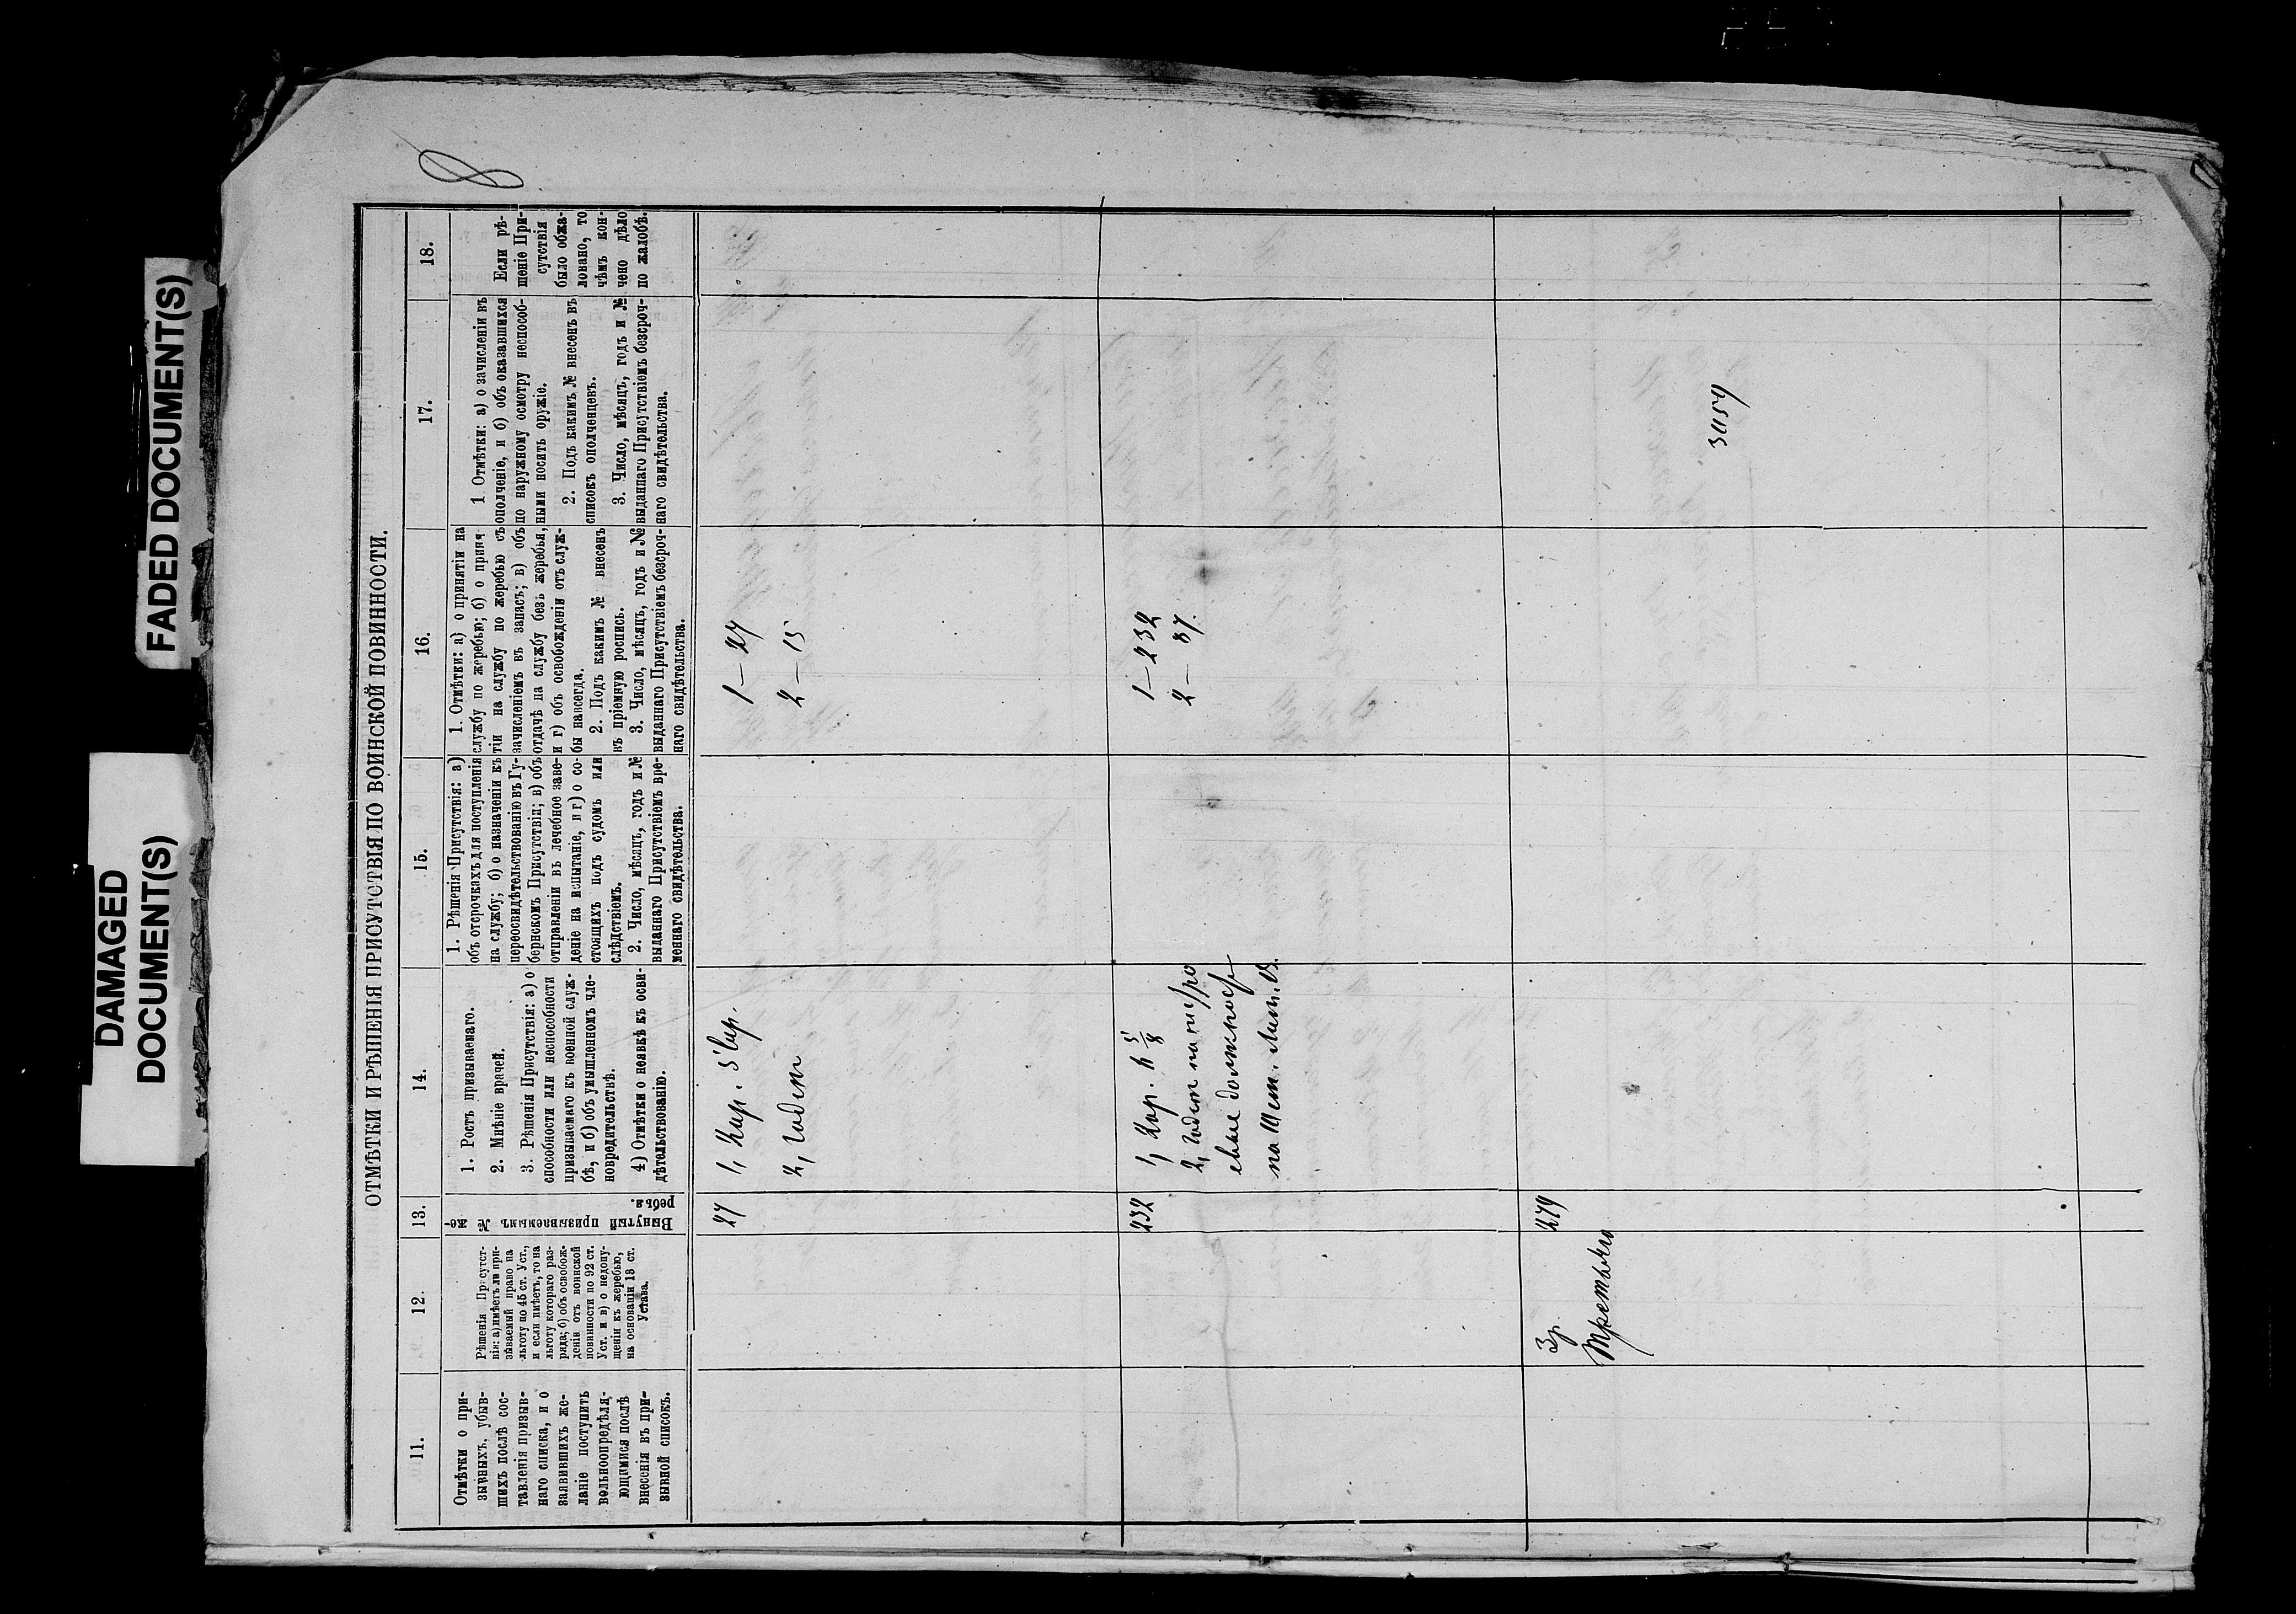 FADED DOCUMENT(S)
DAMAGED
DOCUMENT(S)
ОТМѢТКИ И РѢШЕНІЯ ПРИСУТСТВІЯ ПО ВОИНСКОЙ ПОВИННОСТИ.
11.
12.
13.
14.
15.
16.
17.
18.
Отмѣтки о при-
зывныхъ, убыв-
шихъ послѣ сос-
тавленія призыв-
наго списка, и о
заявившихъ же-
ланіе поступить
вольноопредѣля-
ющимися послѣ
внесенія въ при-
зывной списокъ.
Рѣшенія Присутст-
вія: а) имѣетъ ли при-
зываемый право на
льготу по 45 ст. Уст.,
и если имѣетъ, то на
льготу котораго раз-
ряда; б) объ освобож-
деніи отъ воинской
повинности по 92 ст.
Уст. и в) о недопу-
щеніи къ жеребью,
на основаніи 18 ст.
Устава.
Вынутый призываемымъ № же-
ребья.
1. Ростъ призываемаго.
2. Мнѣніе врачей.
3. Рѣшенія Присутствія: а) о
способности или неспособности
призываемаго къ военной служ-
бѣ, и б) объ умышленномъ чле-
новредительствѣ.
4) Отмѣтки о неявкѣ къ осви-
дѣтельствованію.
1. Рѣшенія Присутствія: а)
объ отсрочкахъ для поступленія
на службу; б) о назначеніи къ
переосвидѣтельствованію въ Гу-
бернскомъ Присутствіи; в) объ
отправленіи въ лечебное заве-
деніе на испытаніе, и г) о со-
стоящихъ подъ судомъ или
слѣдствіемъ.
2. Число, мѣсяцъ, годъ и №
выданнаго Присутствіемъ вре-
меннаго свидѣтельства.
1. Отмѣтки: а) о принятіи на
службу по жеребью; б) о приня-
тіи на службу по жеребью съ
зачисленіемъ въ запасъ; в) объ
отдачѣ на службу безъ жеребья,
и г) объ освобожденіи отъ служ-
бы навсегда.
2. Подъ какимъ № внесенъ
въ пріемную роспись.
3. Число, мѣсяцъ, годъ и №
выданнаго Присутствіемъ безсроч-
наго свидѣтельства.
1 Отмѣтки: а) о зачисленіи въ
ополченіе, и б) объ оказавшихся
по наружному осмотру неспособ-
ными носить оружіе.
2. Подъ какимъ № внесенъ въ
списокъ ополченцевъ.
3. Число, мѣсяцъ, годъ и №
выданнаго Присутствіемъ безсроч-
наго свидѣтельства.
Если рѣ-
шеніе При-
сутствія
было обжа-
ловано, то
чѣмъ кон-
чено дѣло
по жалобѣ.
27
1, 2 ар. 5 вер.
2, годен
1 — 27
2 — 15
232
1, 2 ар. 4 5/8
2, годен на
на
1 — 232
2 — 87.
3 р.
Третьяго
279